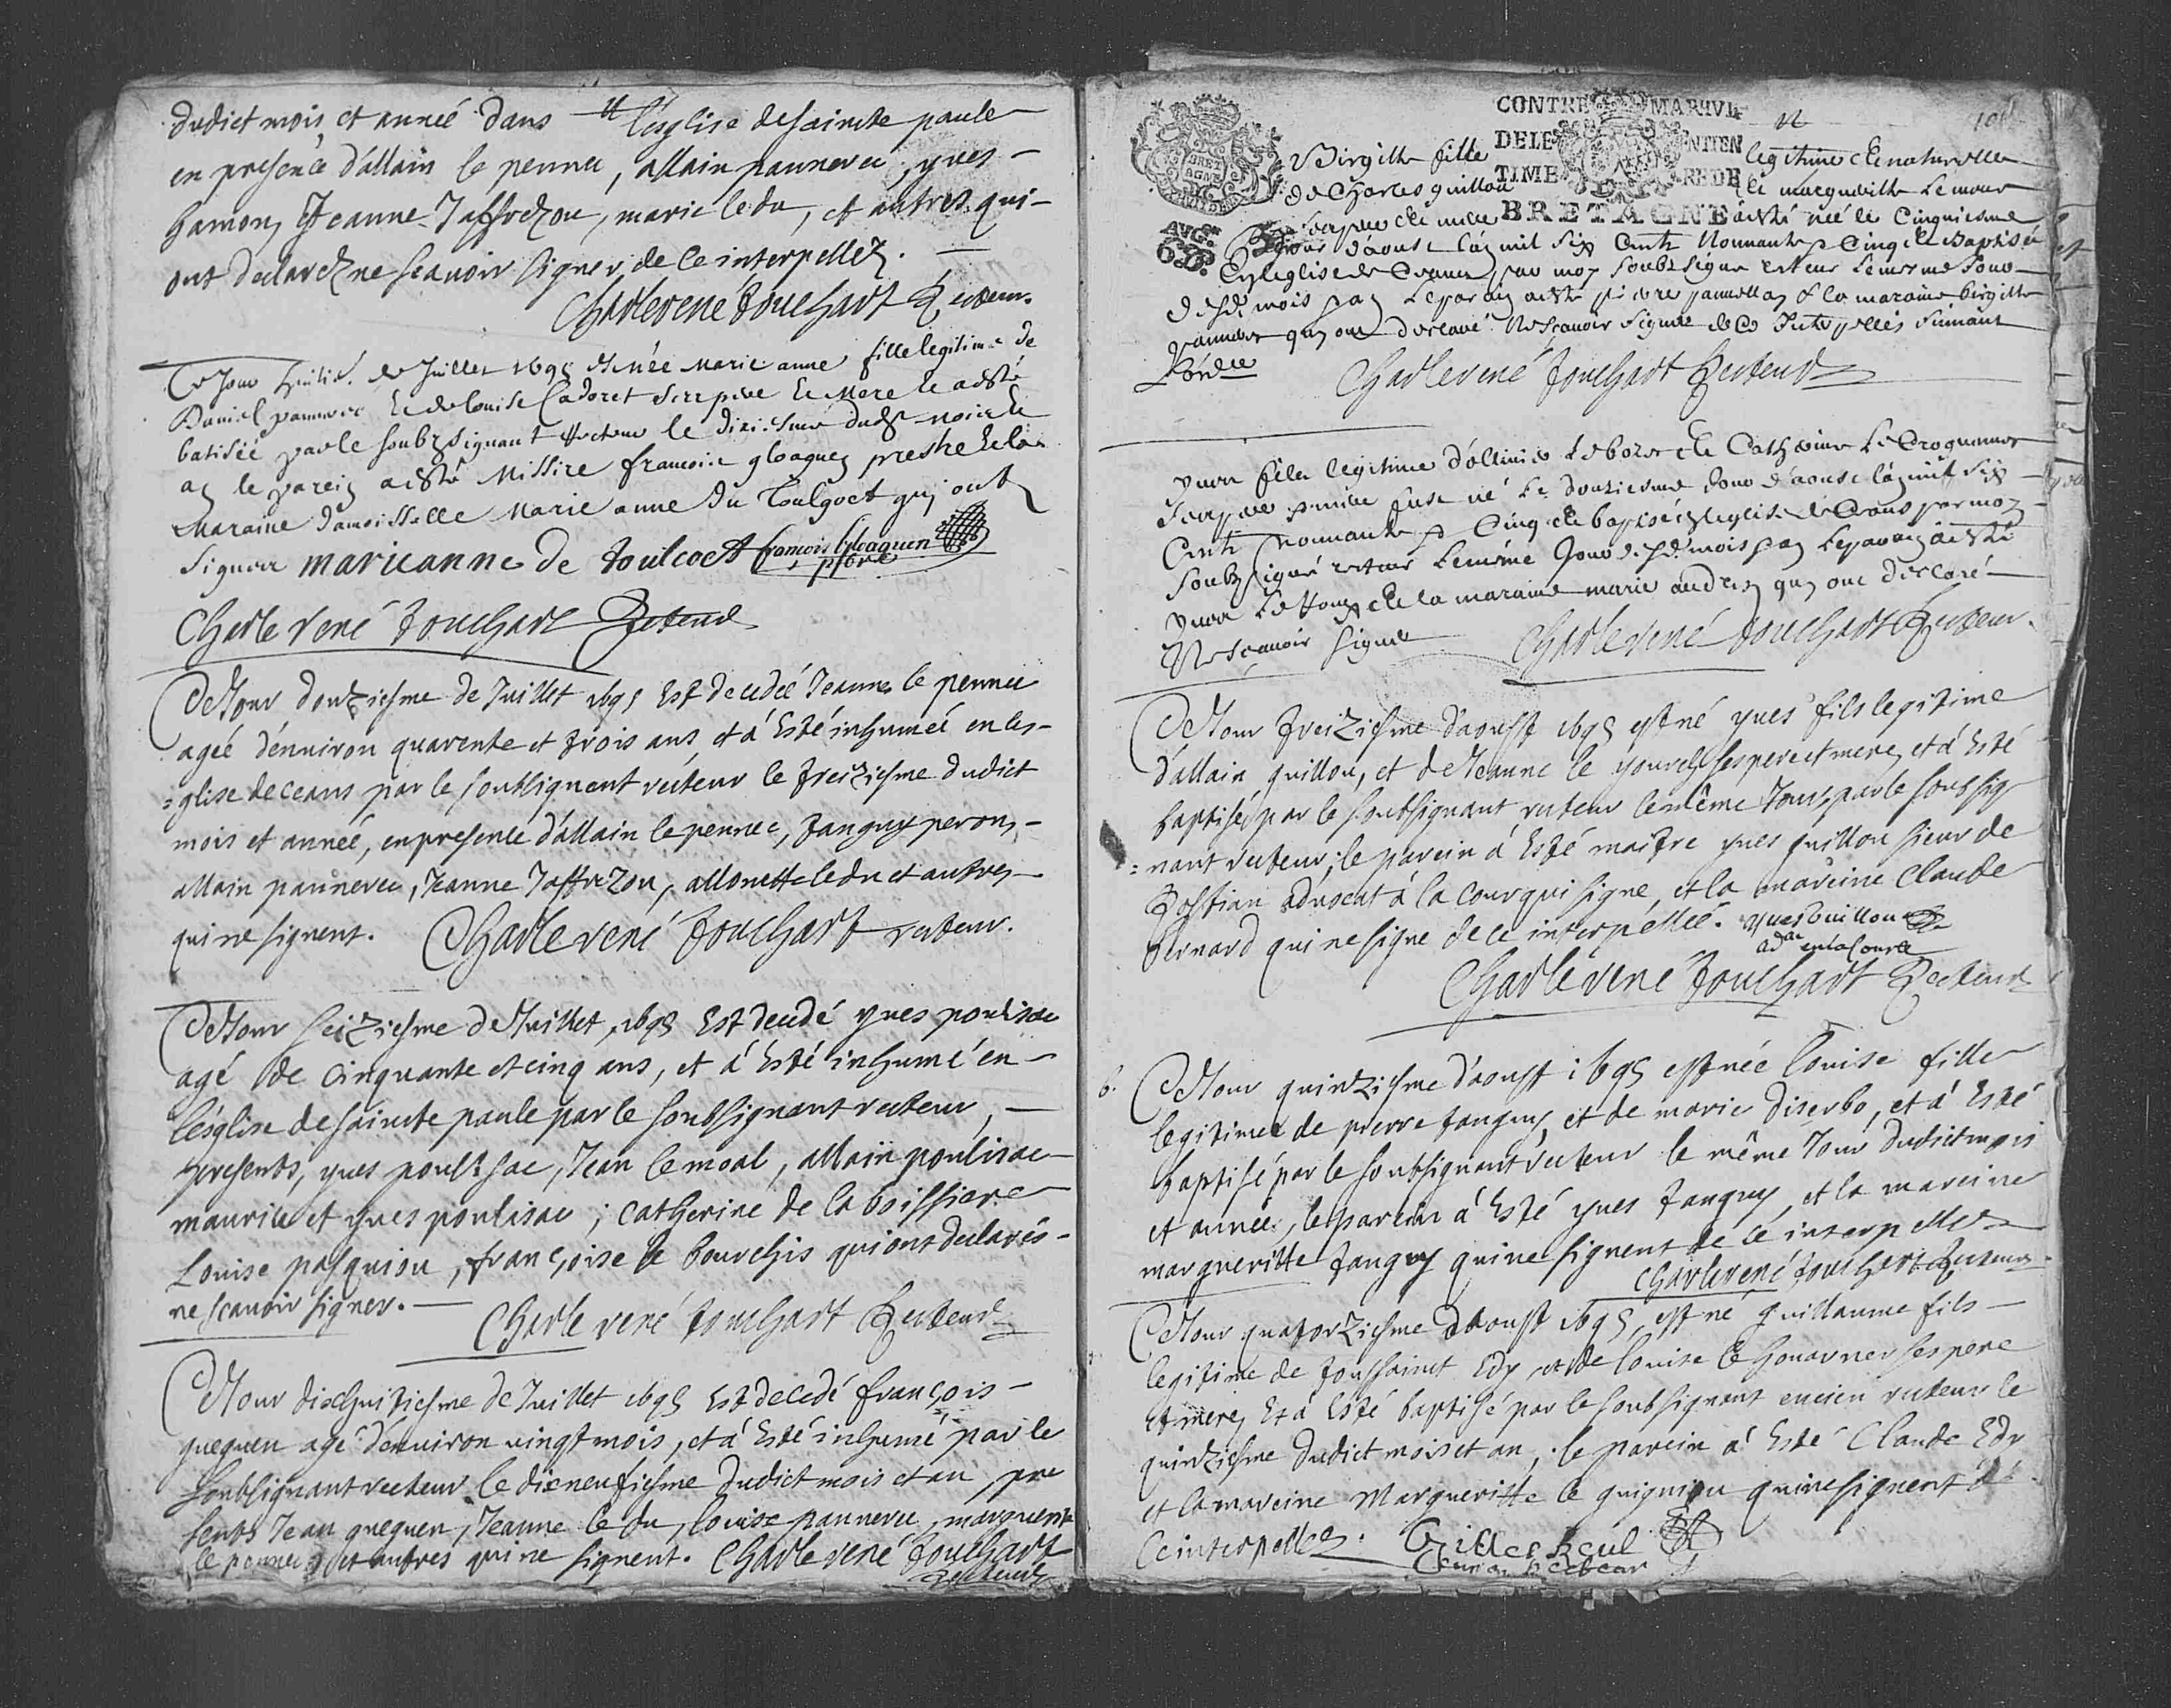 dudict mois et année dans l'esglise de saincte paule
en presence d'allain le pennec, allain pannerec, yves
hamon, Jeanne Jaffrezou, marie le du, et autres qui
ont declarez ne scauoir signer de ce interpellez.
Charle rené Touchart Recteur.
Ce Jour de Juillet 1695 Est née Marie anne fille legitime de
Daniel pannerec Et de louise Cadoret ses pere Et Mere Et a esté
batisée par le soubzsignant recteur le dixiesme dudt mois et
an le parein a esté Missire francois gloaguen prestre Et la
Maraine damoisselle Marie anne du Toulgoet qui ont
signer marieanne de toulcoet francois gloaguen
pbtre
Charle rené Touchart Recteur
Ce Jour douziesme de Juillet 1695 Est decedeé Jeanne le pennec
ageé d'enuiron quarente et trois ans, et a Esté inhumeé en l'es-
=glise de ceans par le soubsignant recteur le treiziesme dudict
mois et anneé, en presence d'allain le pennec, tanguy peron,
allain pannerec, Jeanne Jaffrezou, allonette le du et autres
qui ne signent. Charle rené Touchart recteur.
Ce Jour seiziesme de Juillet, 1695 Est decedé yves poulisac
agé de cinquante et cinq ans, et a Esté inhumé en
l'esglise de saincte paule par le soubsignant recteur,
presents, yves poulisac, Jean le moal, allain poulisac
maurice et yves poulisac; catherine de la boissiere
Louise pasquiou, françoise le bourchis qui ont declarés
ne scauoir signer. Charle rené Touchart Recteur
Ce Jour dixhuitiesme de Juillet 1695 Est decedé françois
gueguen agé d'enuiron vingt mois, et a Esté inhumé par le
soubsignant recteur le dixneufiesme dudict mois et an, pre
sents Jean gueguen, Jeanne le du, louise pannerec, marguerite
le pennec et autres qui ne signent. Charle rené Touchart
Recteur
CONTRE MARQVE
DE LE NTIEN
TIME RE DE
BRETAGNE
AVG.on
6.D.
Birgitte fille legitime et naturelle
de Charles guillou et marguerite Le mour
ses pere et mere a esté née le Cinquiesme
Jour d'aoust l'an mil six Cents Nonnante Cinq et Baptisée
En l'eglise de Ceans, par moy soubzsigné recteur Le mesme Jour
desdt mois & an Le parain a esté pierre & la maraine birgitte
qui ont declaré Ne scauoir signer de Ce Interpellés suivant
L'ordce
Charle rené Touchart Recteur
yuon fils legitime d'ollivier Le borgne et Catherine Le Croguennec
ses pere & mere fust né Le douziesme Jour d'aoust l'an mil six
Cents Nonnante & Cinq et baptisé en l'eglise de Ceans par moy
soubzsigné recteur Le mesme Jour desdt mois & an Le parain a esté
yuon et la maraine marie andren qui ont declaré
Ne scauoir signer Charle rené Touchart Recteur.
Ce Jour treiziesme d'aoust 1695 est né yves fils legitime
d'allain guillou, et de Jeanne le yourch ses pere et mere, et a Esté
baptisé par le soubsignant recteur le même Jour, par le soubsig
=nant recteur; le parein a Esté maitre yves guillou sieur de
Rostian aduocat à la cour qui signe, et la mareine Claude
bernard qui ne signe de ce interpelleé. yves Guillou
adat en la Cour
Charle rené Touchart Recteur
6. Ce Jour quinziesme d'aoust 1695 est née louise fille
legitime de pierre tanguy, et de marie diserbo, et a Esté
baptisé par le soubsignant recteur le même Jour dudict mois
et année, le parein a Esté yves tanguy, et la mareine
margueritte tanguy qui ne signent de ce interpellés
Charle rené Touchart Recteur.
Ce Jour quatorziesme d'aoust 1695, est né guillaume fils
legitime de toussainct Edy, et de louise le gouarner ses pere
et mere, Et a Esté baptisé par le soubsignant encien recteur le
quinziesme dudict mois et an, le parein a Esté Claude Edy
et la mareine Margueritte le guigniou qui ne signent de
ce interpelles.